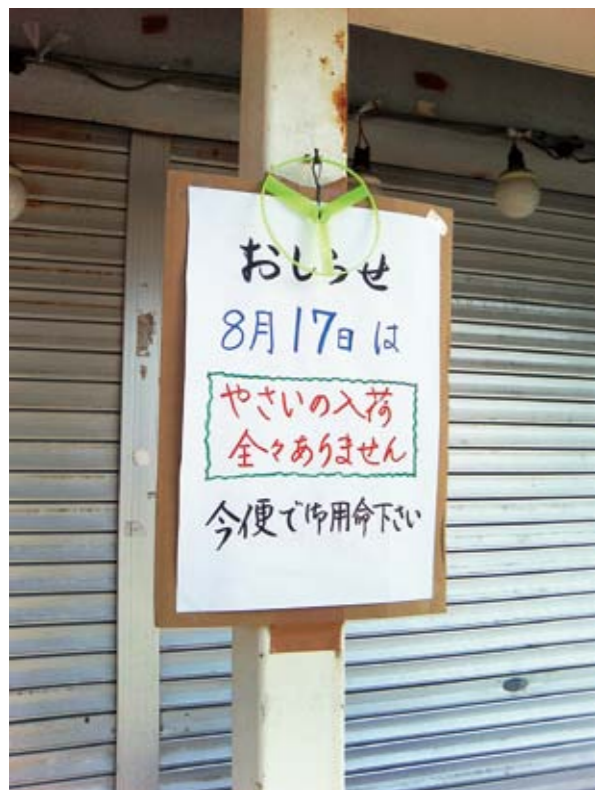 おしらせ
8月17日は
やさいの入荷
全々ありません
今便で御用命下さい